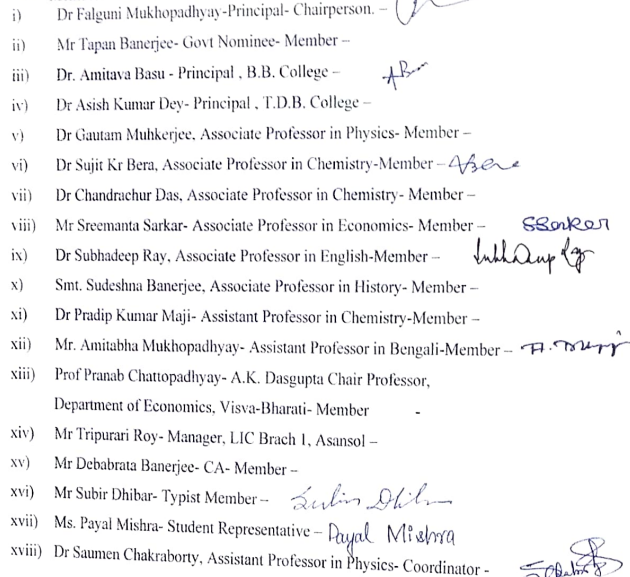 i) Dr Falguni Mukhopadhyay-Principal- Chairperson. –
ii) Mr Tapan Banerjee- Govt Nominee- Member –
iii) Dr. Amitava Basu - Principal , B.B. College –
iv) Dr Asish Kumar Dey- Principal , T.D.B. College –
v) Dr Gautam Muhkerjee, Associate Professor in Physics- Member –
vi) Dr Sujit Kr Bera, Associate Professor in Chemistry-Member –
vii) Dr Chandrachur Das, Associate Professor in Chemistry- Member –
viii) Mr Sreemanta Sarkar- Associate Professor in Economics- Member – SSarkar
ix) Dr Subhadeep Ray, Associate Professor in English-Member –
x) Smt. Sudeshna Banerjee, Associate Professor in History- Member –
xi) Dr Pradip Kumar Maji- Assistant Professor in Chemistry-Member –
xii) Mr. Amitabha Mukhopadhyay- Assistant Professor in Bengali-Member –
xiii) Prof Pranab Chattopadhyay- A.K. Dasgupta Chair Professor,
Department of Economics, Visva-Bharati- Member -
xiv) Mr Tripurari Roy- Manager, LIC Brach 1, Asansol –
xv) Mr Debabrata Banerjee- CA- Member –
xvi) Mr Subir Dhibar- Typist Member –
xvii) Ms. Payal Mishra- Student Representative – Payal Mishra
xviii) Dr Saumen Chakraborty, Assistant Professor in Physics- Coordinator -